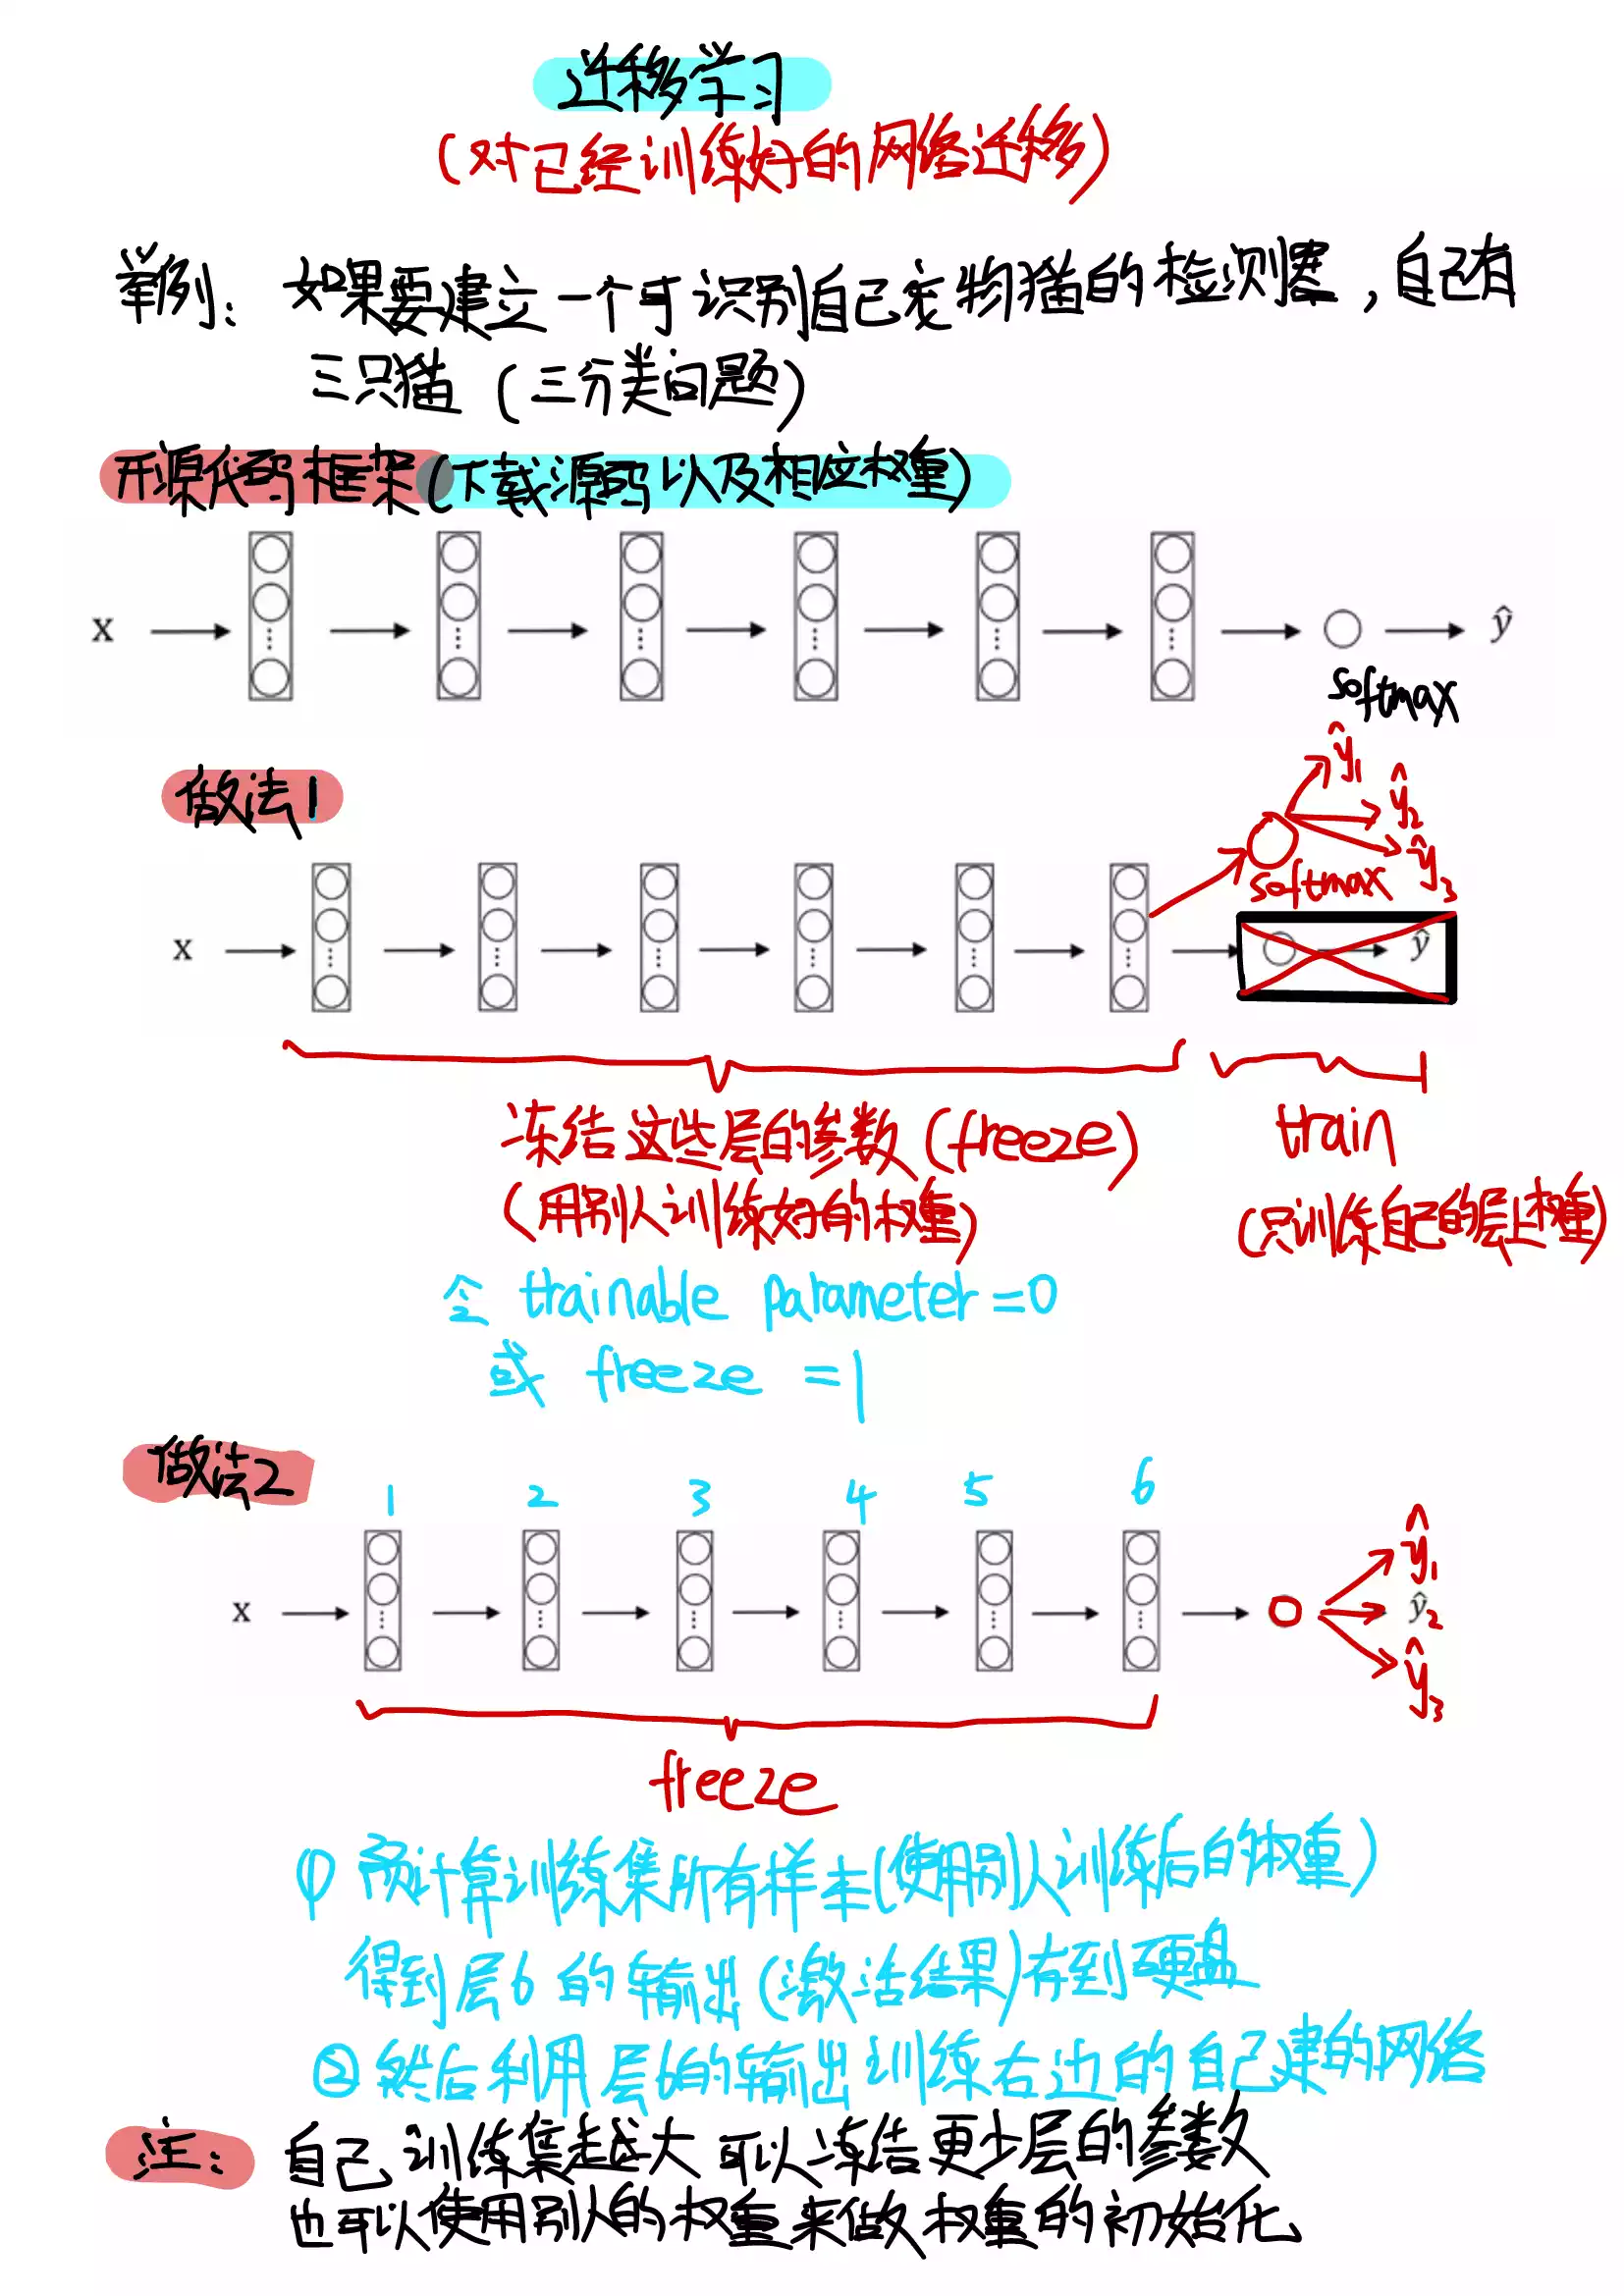 迁移学习
(对已经训练好的网络迁移)
举例: 如果要建立一个可识别自己宠物猫的检测器, 自己有
三只猫 (三分类问题)
开源代码框架(下载源码以及相应权重)
x ŷ
softmax
做法1
ŷ₁
ŷ₂
ŷ₃
softmax
x ŷ
冻结这些层的参数(freeze) train
(用别人训练好的权重) (只训练自己的层上权重)
令 trainable parameter=0
或 freeze =1
做法2
1 2 3 4 5 6
ŷ₁
x ŷ₂
ŷ₃
freeze
① 预计算训练集所有样本(使用别人训练后的权重)
得到层6的输出(激活结果)存到硬盘
②然后利用层6的输出训练右边的自己建的网络
注: 自己训练集越大可以冻结更少层的参数
也可以使用别人的权重来做权重的初始化